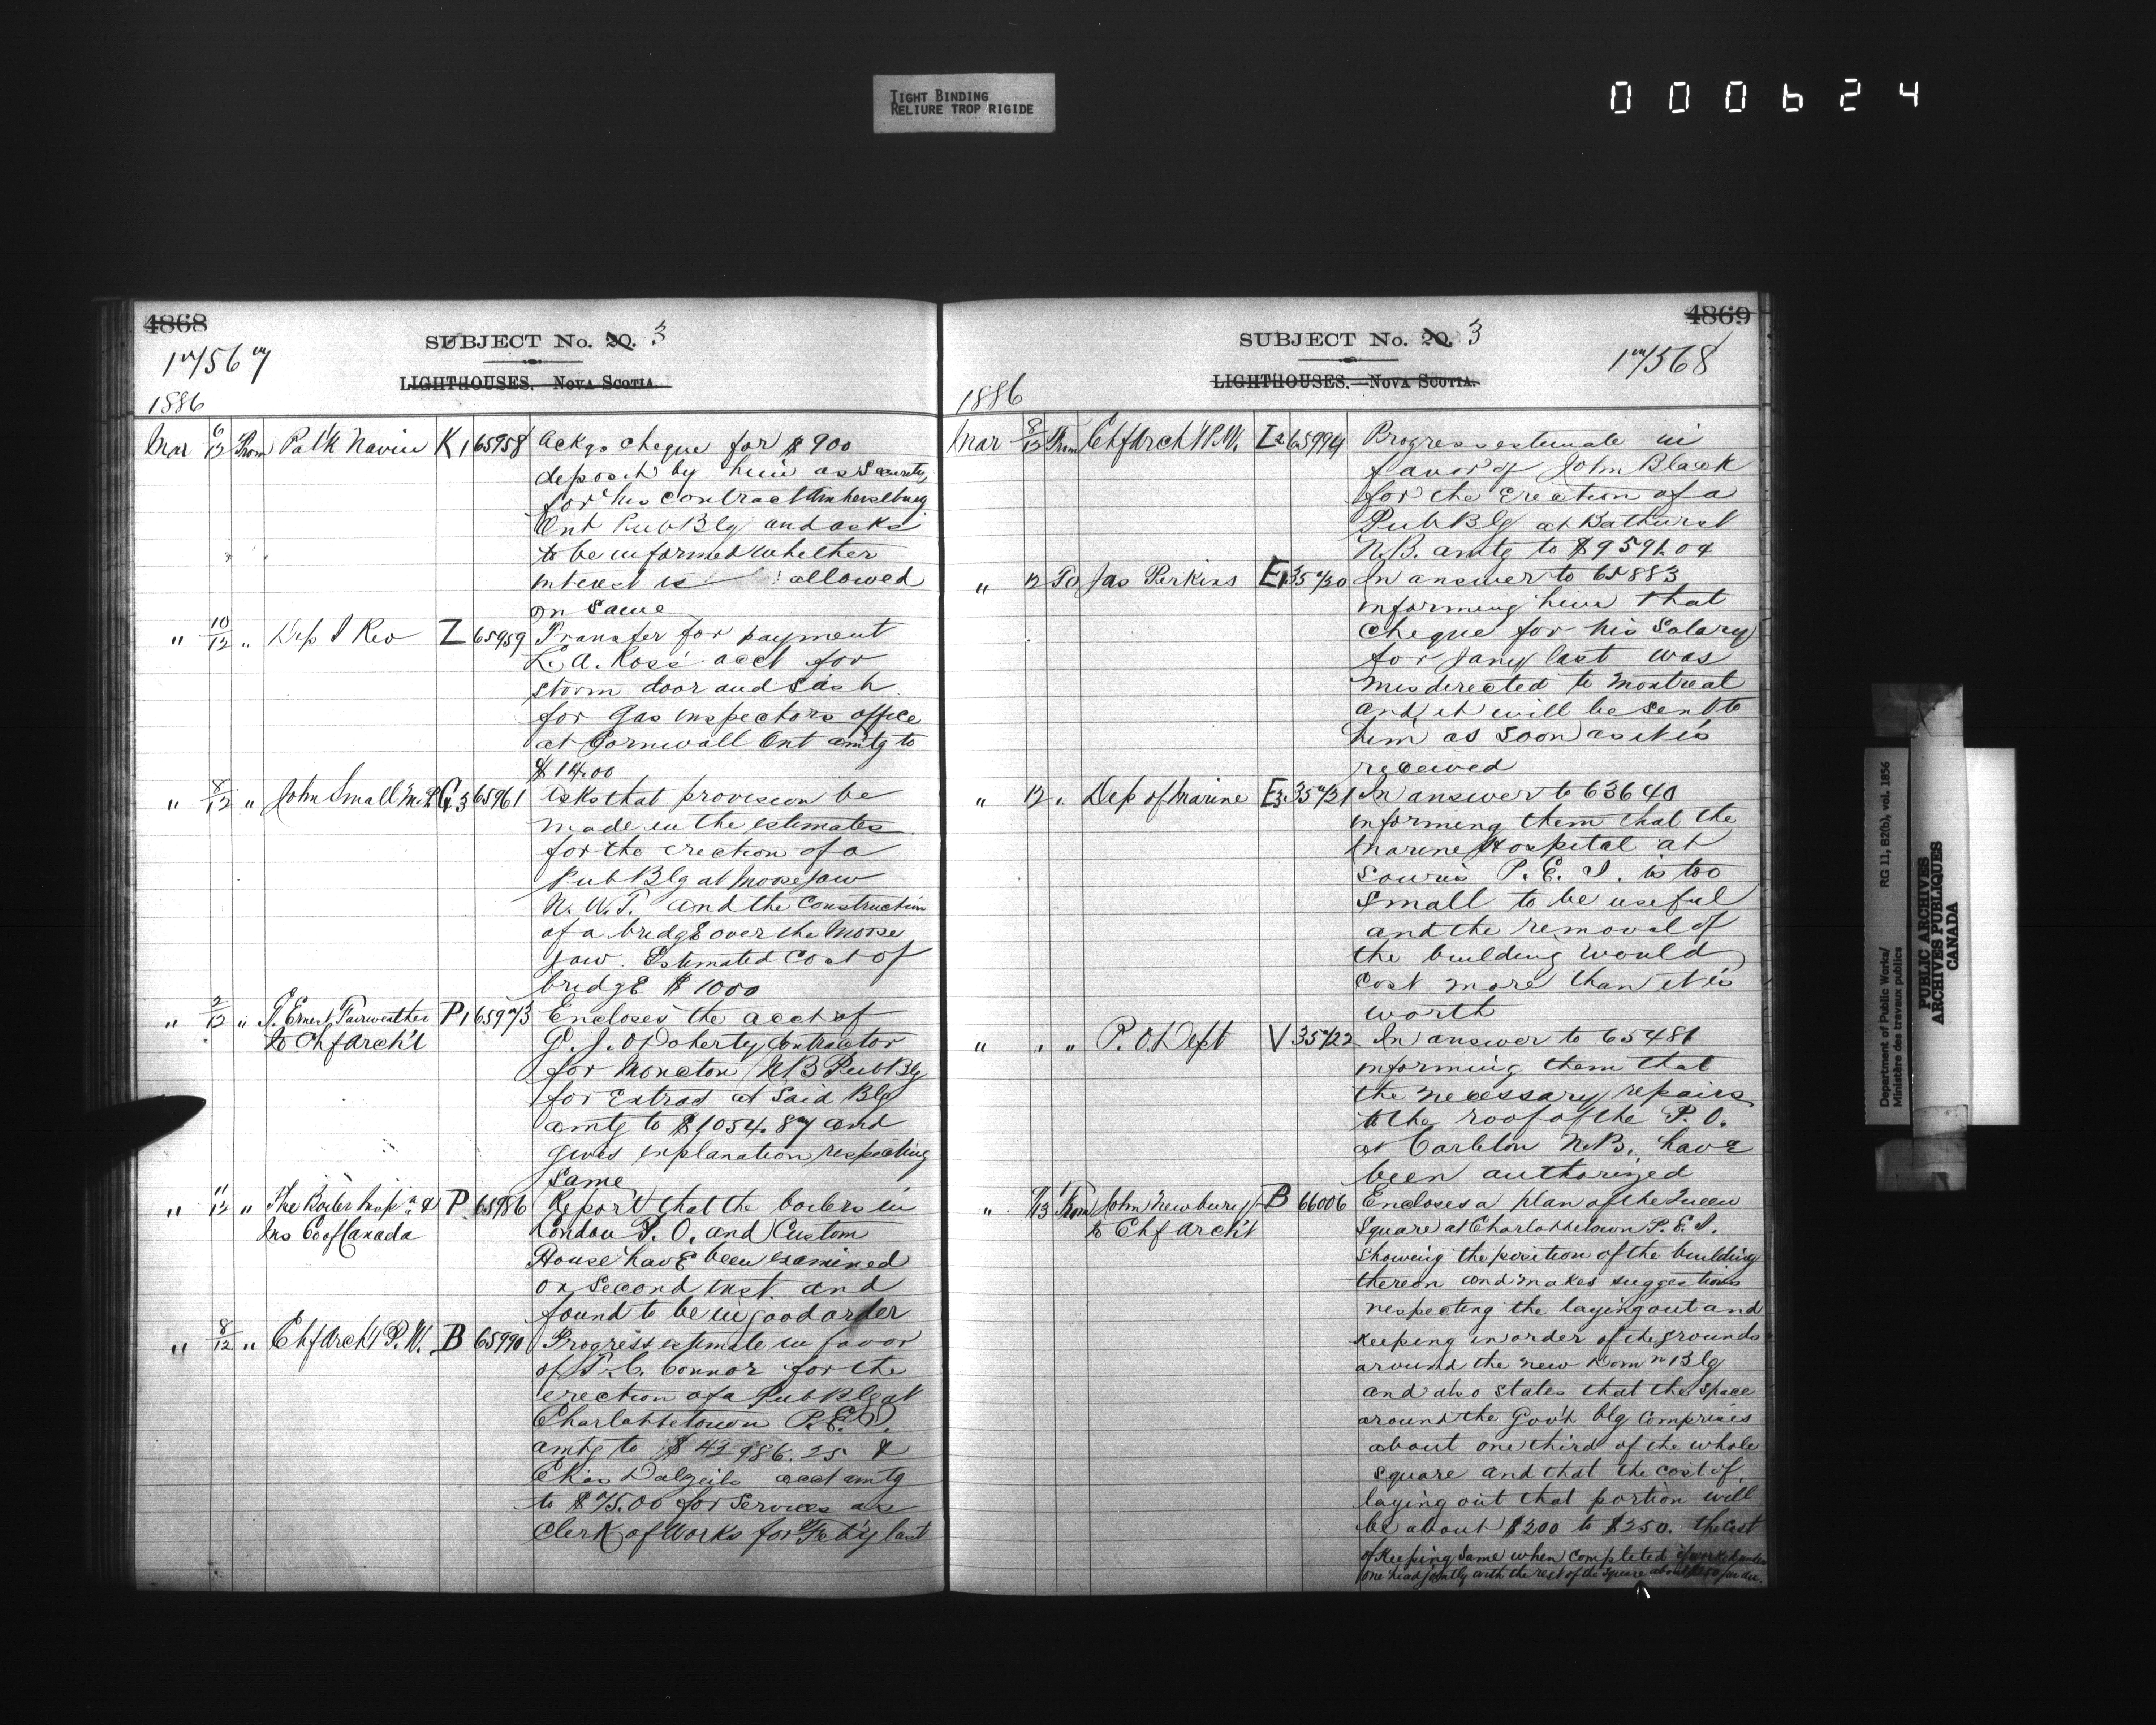 TIGHT BINDING
RELIURE TROP RIGIDE
000624
4868
SUBJECT No. 20. 3
17/567
LIGHTHOUSES. NOVA SCOTIA.
1886
Mar 6/12 From Patk Navin K1 65958 Ackgs cheque for $900
deposit by him as Security
for his contract Amherstburg
Ont Pub Blg and asks
to be informed whether
interest is allowed
on same
" 10/12 " Dep I Rev Z 65959 Transfer for payment
L. A. Ross' acct for
storm door and sash
for Gas inspectors office
at Cornwall Ont amtg to
$14.00
" 8/12 " John Small M.P. G3 65961 asks that provision be
made in the estimates
for the erection of a
Pub Blg at Moose Jaw
N. W. T. and the construction
of a bridge over the Moose
Jaw. Estimated Cost of
bridge $1000
" 2/12 " J. Ernest Fairweather P1 65973 Encloses the acct of
to Chf Arch't G. J. O'Doherty Contractor
for Moncton NB Pub Blg
for Extras at Said Blg
amtg to $1054.87 and
gives explanation respecting
Same
" 11/12 " The Boiler Insp'n & P 65986 Report that the boilers in
Ins Co of Canada London P. O. and Custom
House have been examined
on Second inst. and
found to be in good order
" 8/12 " Chf Arch't P.W. B 65990 Progress estimate in favor
of T. C. Connor for the
erection of a Pub Blg at
Charlottetown P.E.I.
amtg to $42986.25 &
Chas Dalzeils acct amtg
to $75.00 for Services as
Clerk of Works for Feb'y last
4869
SUBJECT No. 20. 3
17/568
LIGHTHOUSES.—NOVA SCOTIA.
1886
Mar 8/12 From Chf Arch't P.W. I2 65994 Progress estimate in
favor of John Black
for the Erection of a
Pub Blg at Bathurst
N.B. amtg to $9591.04
" 12 To Jas Perkins E1 35720 In answer to 65883
informing him that
cheque for his Salary
for Jany last was
misdirected to Montreal
and it will be sent to
him as soon as it is
received
" 12 " Dep of Marine E3 35721 In answer to 63640
informing them that the
Marine Hospital at
Souris P. E. I. is too
Small to be useful
and the removal of
the building would
cost more than it is
worth
" " " P. O. Dept V 35722 In answer to 65481
informing them that
the necessary repairs
to the roof of the P. O.
at Carleton N.B. have
been authorized
" /13 From John Newbury B 66006 Encloses a plan of the Queen
to Chf Arch't Square at Charlottetown P.E.I.
showing the position of the building
thereon and makes suggestions
respecting the laying out and
keeping in order of the grounds
around the new Dom'n Blg
and also states that the space
around the Gov't blg comprises
about one third of the whole
square and that the cost of
laying out that portion will
be about $200 to $250. the Cost
of keeping same when completed if worked under
one head jointly with the rest of the square about
Department of Public Works/
Ministère des travaux publics
RG 11, B2(b), vol. 1856
PUBLIC ARCHIVES
ARCHIVES PUBLIQUES
CANADA